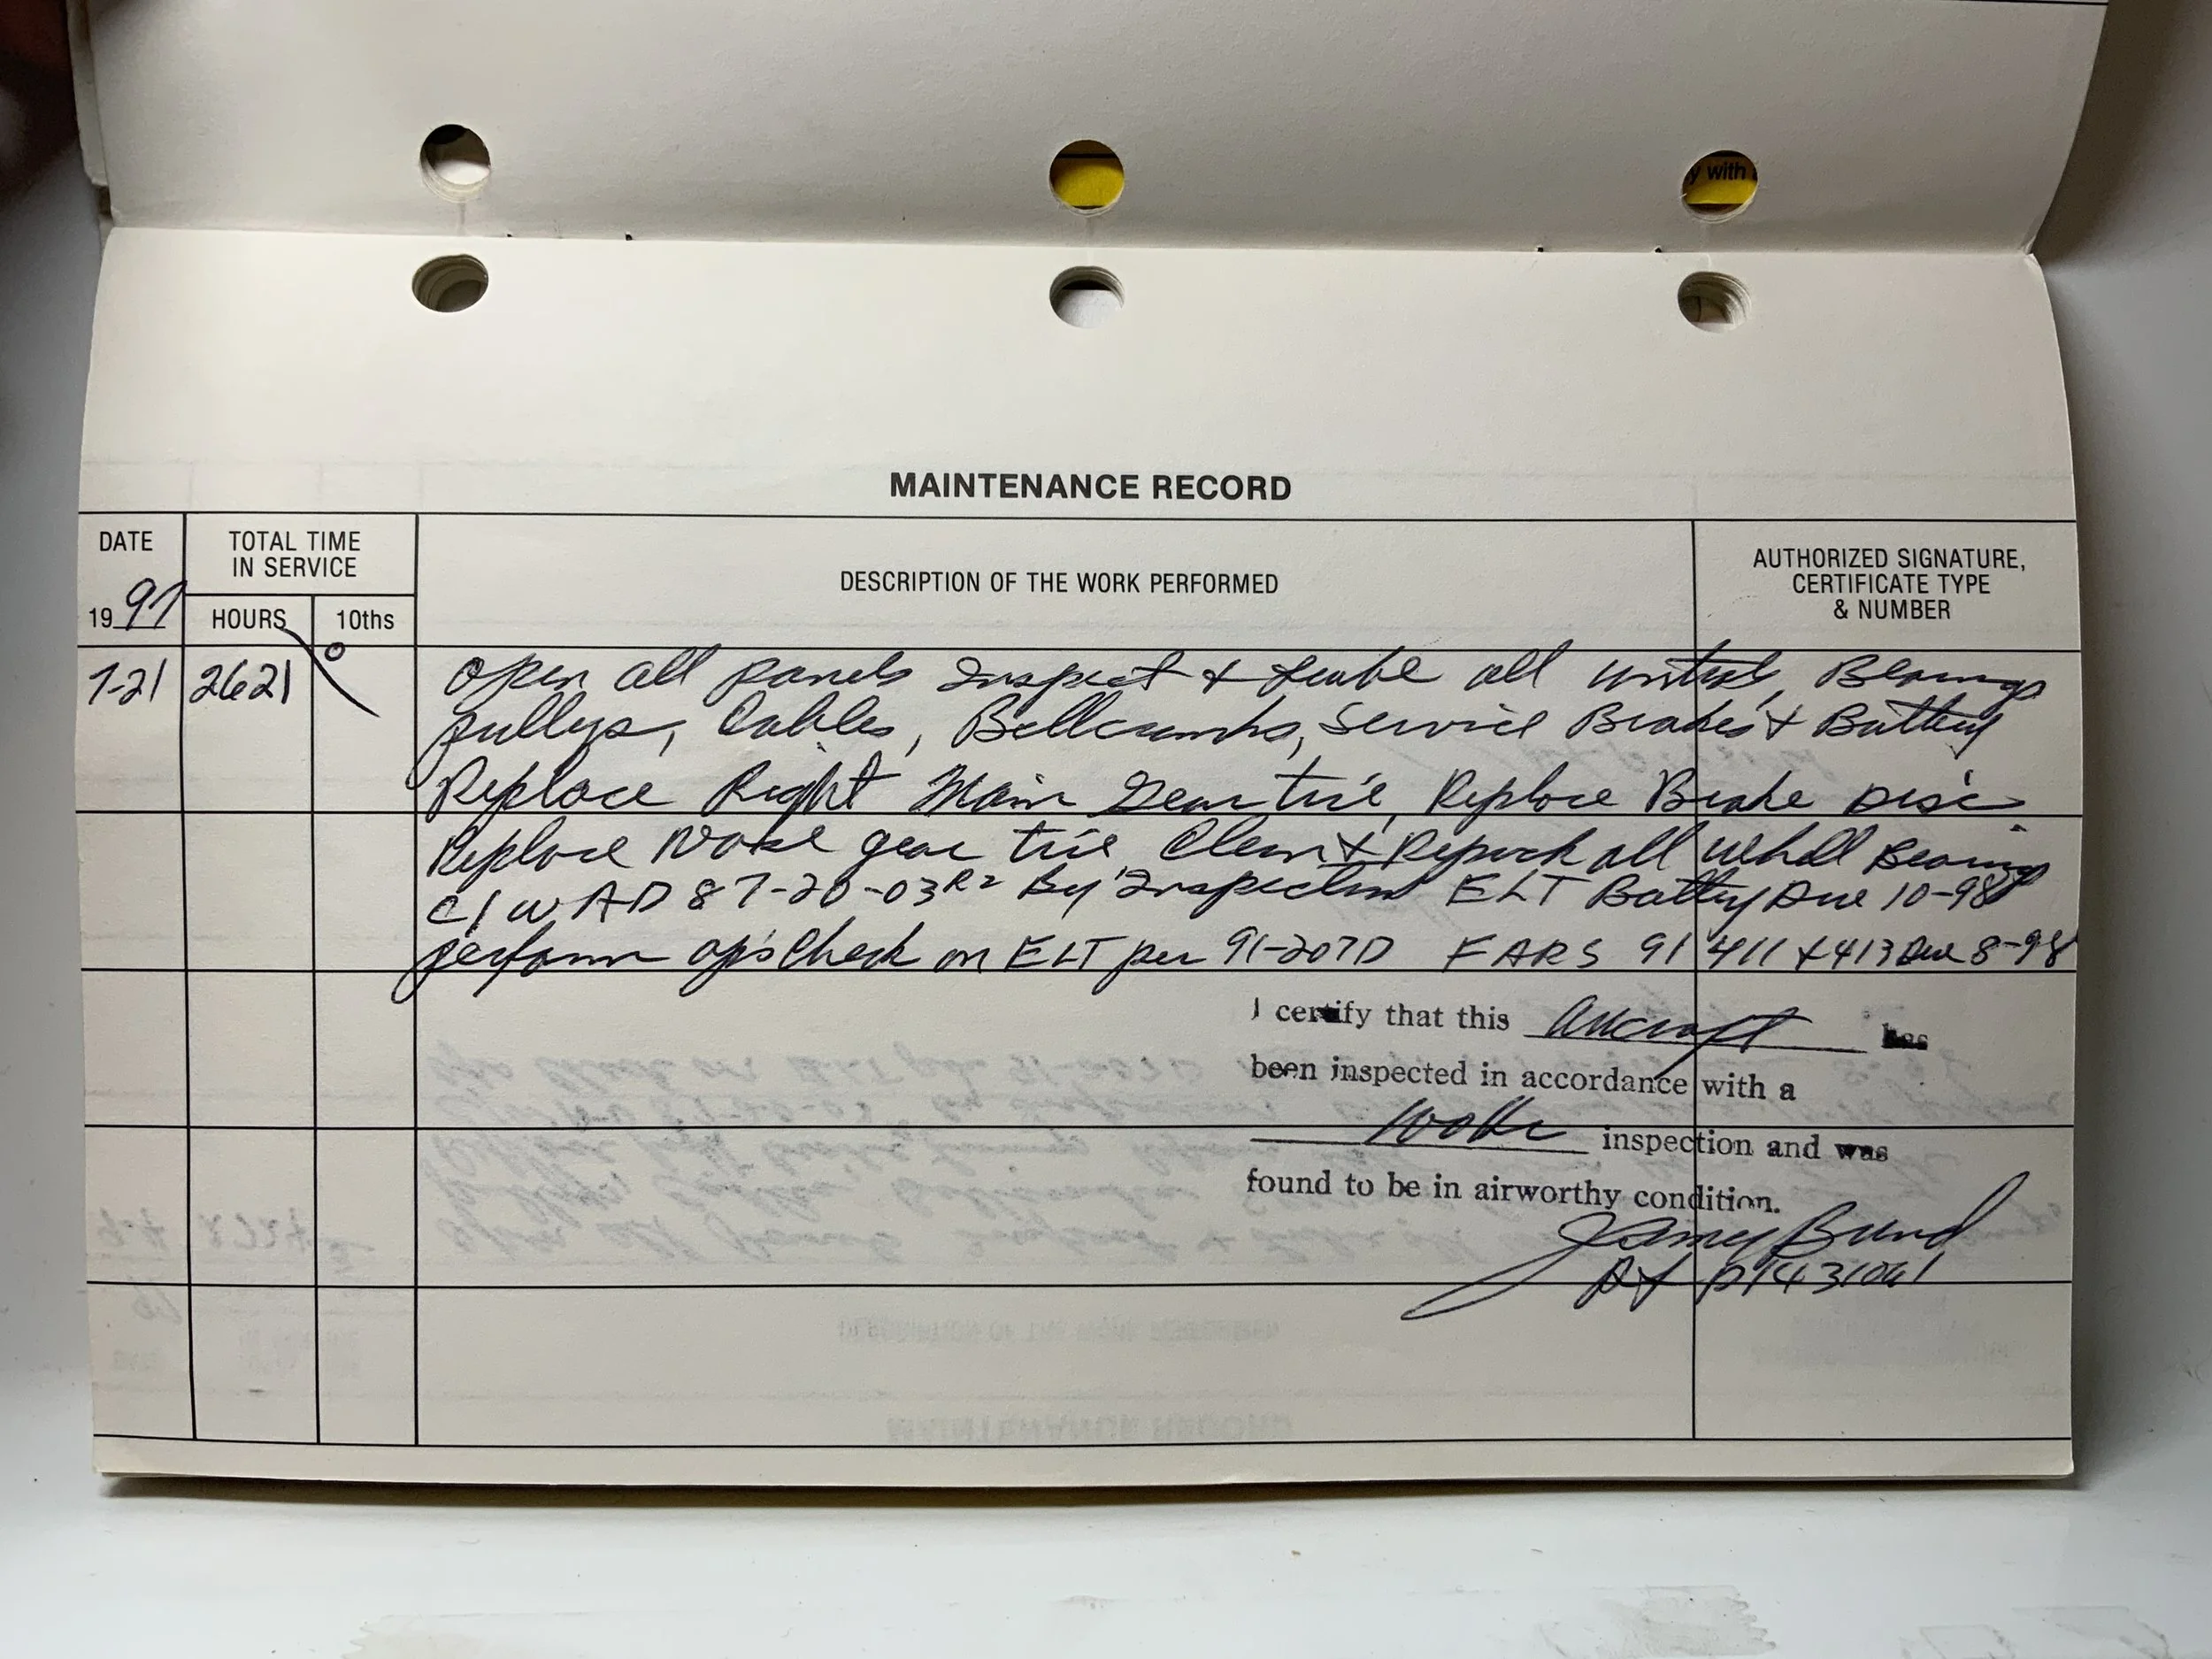 y with
MAINTENANCE RECORD
DATE
TOTAL TIME
IN SERVICE
DESCRIPTION OF THE WORK PERFORMED
AUTHORIZED SIGNATURE,
CERTIFICATE TYPE
& NUMBER
1997
HOURS
10ths
7-21 2621 0 Open all panels Inspect & Lube all Bearings
pullys, Cables, Bellcranks, Service Brakes & Battery
Replace Right Main Gear tire, Replace Brake Disc
Replace Nose gear tire, Clean & Repack all Wheel Bearings
C/W AD 87-20-03R2 By Inspection ELT Battery Due 10-98
perform ops Check on ELT per 91-207D FARS 91 411 & 413 Due 8-98
I certify that this aircraft has
been inspected in accordance with a
100Hr inspection and was
found to be in airworthy condition.